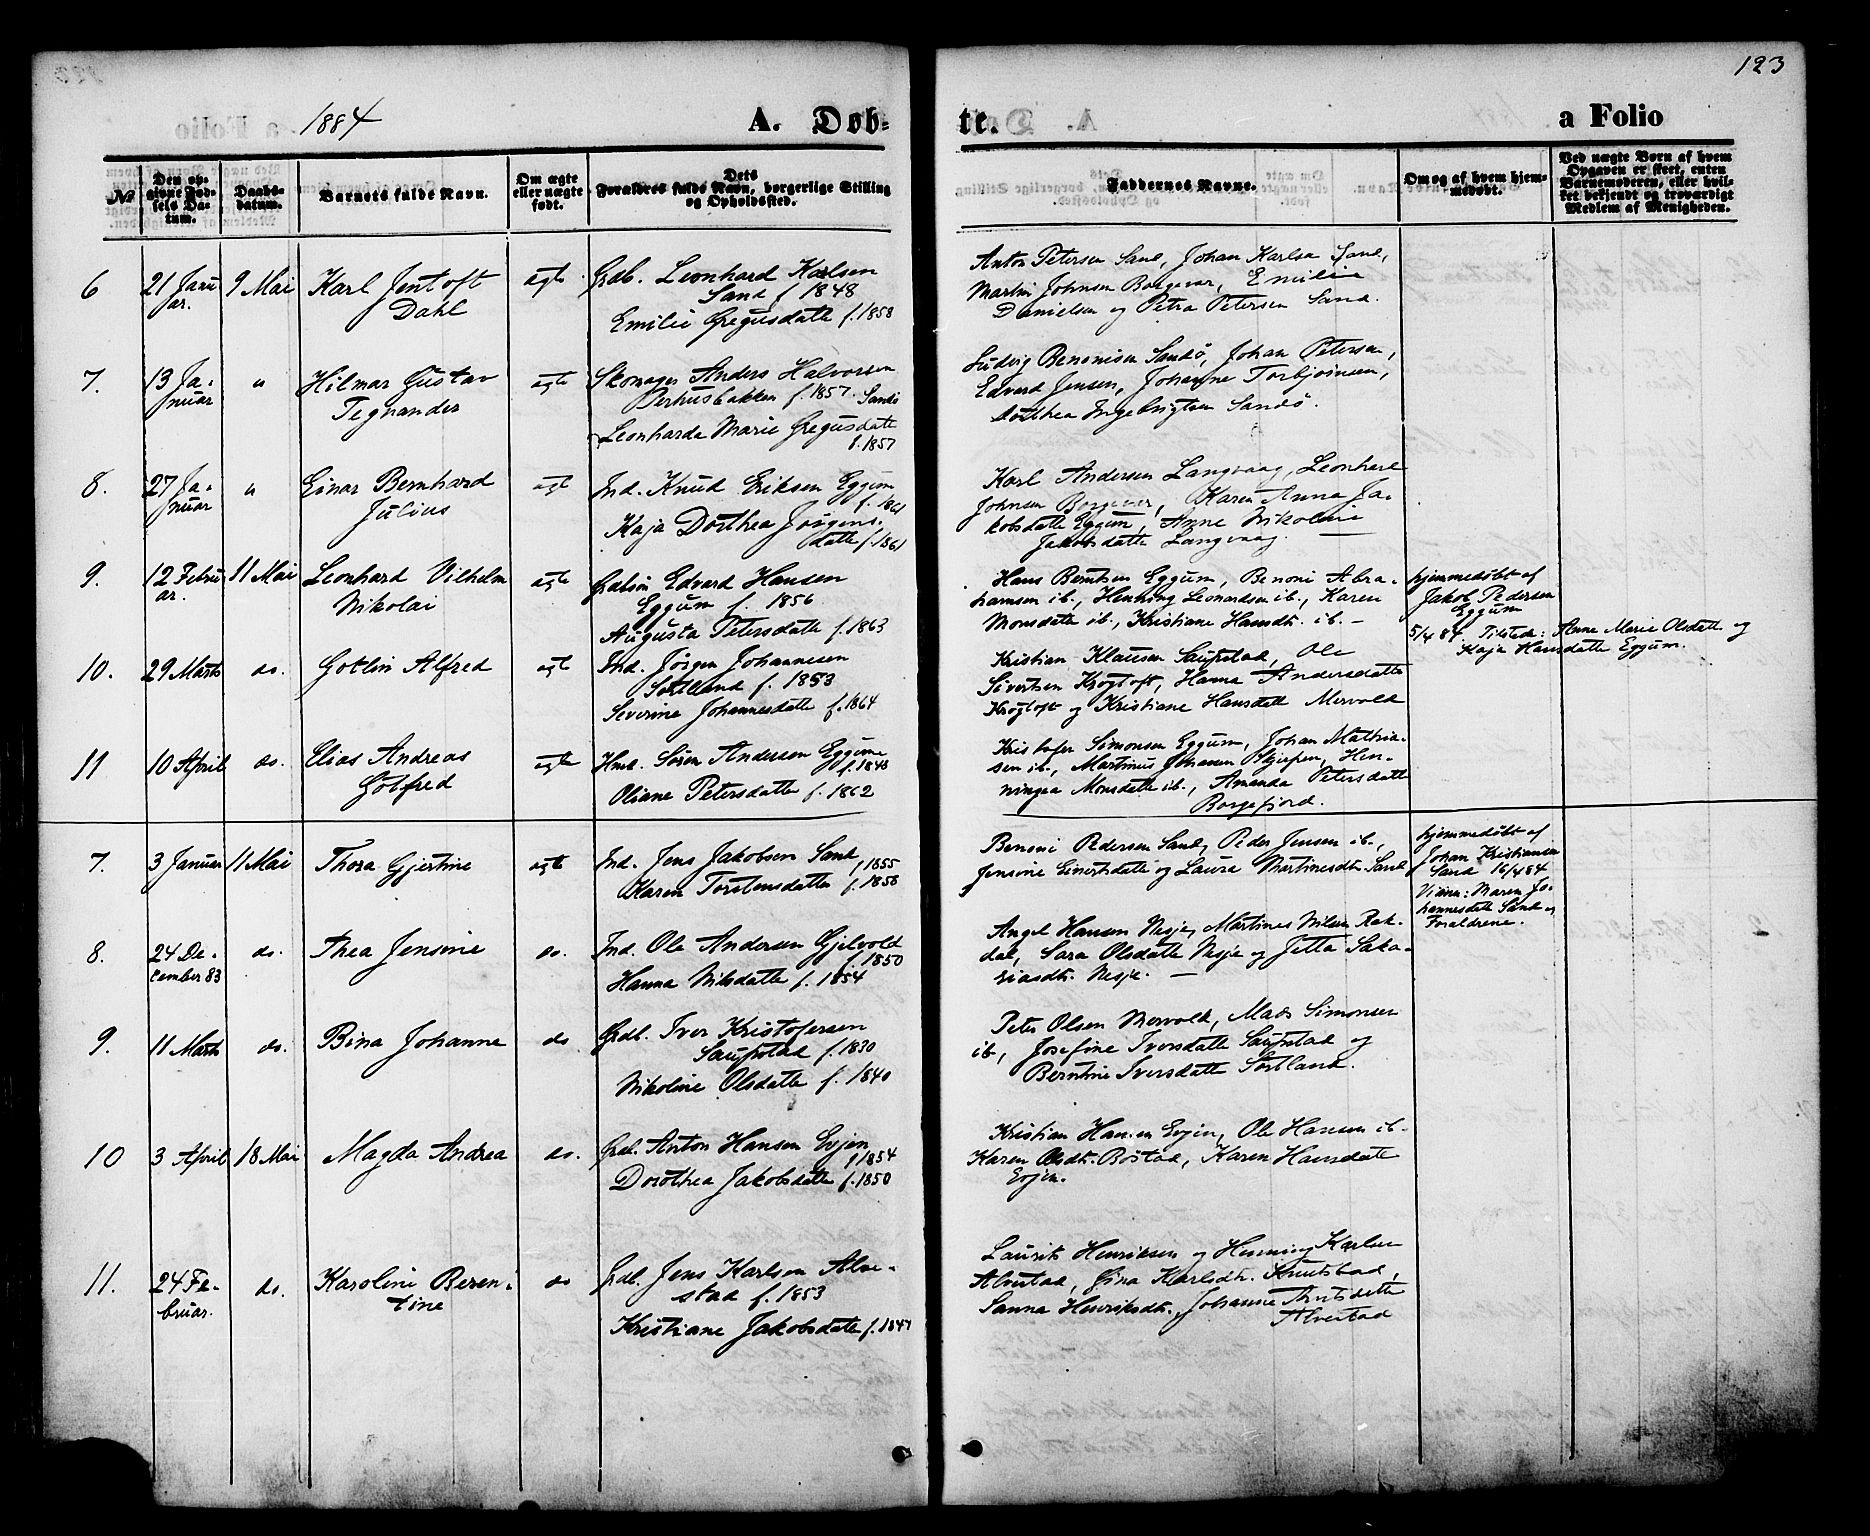 123
1884
A. Døb-
te.
a Folio
№
Den op-
givne Fød-
sels Da-
tum.
Daabs-
datum.
Barnets fulde Navn.
Om ægte
eller uægte
født.
Dets
Forældres fulde Navn, borgerlige Stilling
og Opholdssted.
Faddernes Navne.
Om og af hvem hjem-
medøbt.
Ved uægte Børn af hvem
Opgaven er skeet, enten
Barnemoderen, eller hvil-
ket bekjendt og troværdigt
Medlem af Menigheden.
6
21 Janu
ar.
9 Mai
Karl Jentoft
Dahl
ægte
Grdb. Leonhard Karlsen
Sand f. 1848
Emilie Gregusdatte f. 1858
Anton Petersen Sand, Johan Karlsen Sand,
Martin Johnsen Borgevær, Emilie
Danielsen og Petra Petersen Sand.
7.
13 Ja-
nuar
"
Hilmar Gustav
Tegnander
ægte
Skomager Anders Halvorsen
Perhusbakken f. 1857. Sandø
Leonharda Marie Gregusdatte
f. 1857
Ludvig Benonisen Sandø, Johan Petersen,
Edvard Jensen, Johanne Torbjørnsen,
Dorthea Ingebrigtsen Sandø.
8.
27 Ja-
nuar
"
Einar Bernhard
Julius
ægte
Ind. Knud Eriksen Eggum
f. 1861
Kaja Dorthea Jørgens-
datte f. 1861
Karl Andersen Langvaag, Leonhard
Johnsen Borgevær, Karen Anna Ja-
kobsdatte Eggum, Anne Nikoline
Jakobsdatte Langvaag.
9.
12 Febru
ar.
11 Mai
Leonhard Vilhelm
Nikolai
ægte
Edvard Hansen
Eggum f. 1856
Augusta Petersdatte f. 1863
Hans Berntsen Eggum, Benoni Abra-
hamsen ib., Henning Leonardsen ib., Karen
Monsdatte ib., Kristiane Hansdt. ib. —
hjemmedøbt af
Jakob Pedersen
Eggum
5/4 84. Tilstede: Anne Marie Olsdatt og
Kaja Hansdatte Eggum.
10.
29 Marts
do.
Gotlin Alfred
ægte
Ind. Jørgen Johannesen
Sortland f. 1853
Severine Johannesdatte f. 1864
Kristian Klausen Saupstad, Ole
Sivertsen Krogtoft, Hanna Andersdatte
Krogtoft og Kristiane Hansdatt Mervold
11
10 April
do.
Elias Andreas
Gotfred
ægte
Hmd. Søren Andersen Eggum
f. 1848
Oliane Petersdatte f. 1862
Kristofer Simonsen Eggum, Johan Mathia-
sen ib., Martinus Johansen, Hen-
ningea Monsdatte ib., Amanda Petersdatte
Borgefjord.
7.
3 Januar
11 Mai
Thora Gjertine
ægte
Ind. Jens Jakobsen Sand
f. 1855
Karen Torstensdatter f. 1856
Benoni Pedersen Sand, Peder Jensen ib.,
Jensine Einertsdatte og Laura Martinesdt. Sand
hjemmedøbt af
Johan Kristiansen
Sand 16/4 84
Vidne: Maren Jo-
hannesdatte Sand og
Forældrene.
8.
24 De-
cember 83
do.
Thea Jensine
do.
Ind. Ole Andersen Gjelvold
f. 1850
Hanna Nilsdatte f. 1854
Angel Hansen Nesje, Martines Nilsen Rek-
dal, Sara Olsdatte Nesje og Jetta Saka-
riasdt. Nesje. —
9.
11 Marts
do.
Bina Johanne
do
Grdb. Iver Kristofersen
Saupstad f. 1830
Nikoline Olsdatte f. 1840
Peter Olsen Mervold, Mads Simonsen
ib, Josefine Iversdatte Saupstad og
Berntine Iversdatte Sortland.
10
3 April
18 Mai
Magda Andrea
do.
Grdb. Anton Hansen Evjen
f 1854
Dorothea Jakobsdatte f. 1850
Kristian Hansen Evjen, Ole Hansen ib.
Karen Olsdt. Bøstad, Karen Hansdatte
Evjen.
11.
24 Fe-
bruar.
do.
Karoline Beren-
tine
do
Grdb. Jens Karlsen Alve-
stad f. 1853
Kristiane Jakobsdatte f. 1847
Laurits Henriksen og Henning Karlsen
Alvestad, Gina Karlsdt. Knutstad,
Sanna Henriksdt., Johanna Arntsdatte
Alvestad